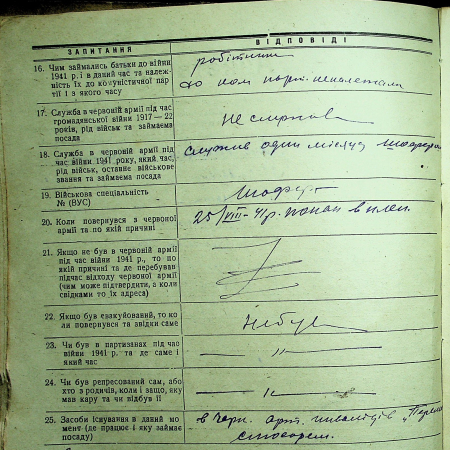 ЗАПИТАННЯ
ВІДПОВІДІ
16. Чим займались батьки до війни
1941 р. і в даний час та належ-
ність їх до комуністичної пар
тії і з якого часу
робітники
до ком парт. неналежали
17. Служба в червоній армії під час
громадянської війни 1917—22
років, рід військ та займаєма
посада
не служив
18. Служба в червоній армії під
час війни 1941 року, який час,
рід військ, останнє військове
звання та займаєма посада
служив один місяць шофером
19. Військова спеціальність
№ (ВУС)
Шофер
20. Коли повернувся з червоної
армії та по якій причині
25/VIII-41р. попав в плен.
21. Якщо не був в червоній армії
під час війни 1941 р., то по
якій причині та де перебував
підчас відходу червоної армії
(чим може підтвердити, а коли
свідками то їх адреса)
22. Якщо був евакуйований, то ко
ли повернувся та звідки саме
Не був
23. Чи був в партизанах під час
війни 1941 р. та де саме і
який час
— " —
24. Чи був репресований сам, або
хто з родичів, коли і защо, яку
мав кару та чи відбув її
— " —
25. Засоби існування в даний мо
мент (де працює і яку займає
посаду)
в арт. инвалидів
столяром.